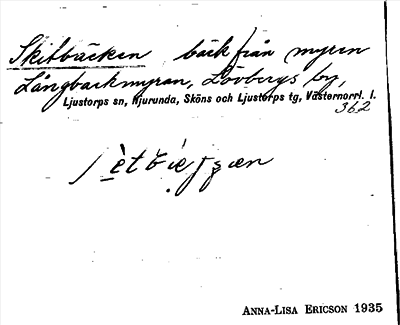 Skitbäcken bäck från myren
Långbackmyran, Lövbergs by,
Ljustorps sn, Njurunda, Sköns och Ljustorps tg, Västernorrl. l.
362
ANNA-LISA ERICSON 1935